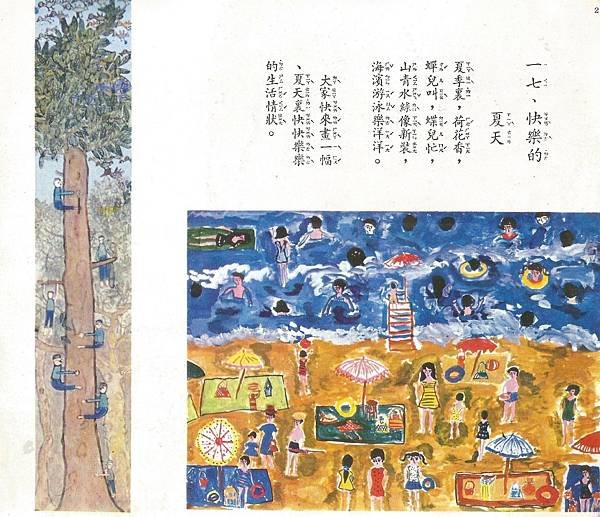 2
一七、快樂的
夏天
夏季裏,荷花香,
蟬兒叫,蝶兒忙,
山青水綠像新裝,
海濱游泳樂洋洋。
大家快來畫一幅
、夏天裏快快樂樂
的生活情狀。